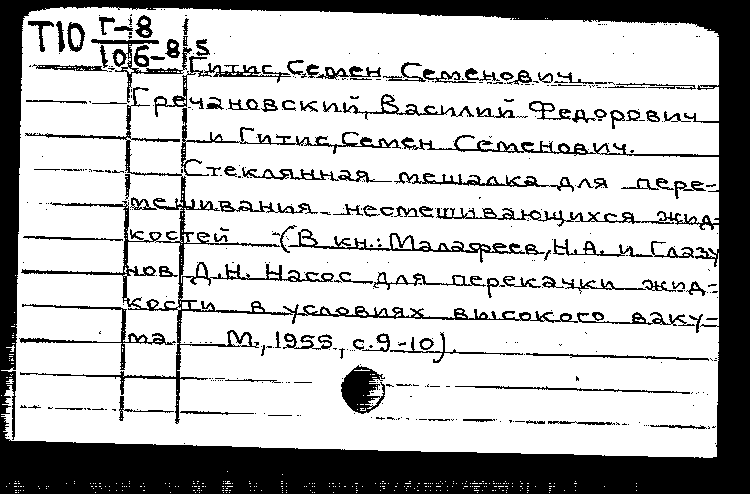 Т10 Г-8
10б-8-5
Гитис, Семен Семенович.
Гречановский, Василий Федорович
и Гитис, Семен Семенович.
Стеклянная мешалка для пере-
мешивания несмешивающихся жид-
костей - (В кн.: Малафеев, Н.А. и Глазу
нов Д.Н. Насос для перекачки жид-
кости в условиях высокого ваку-
ма М., 1955, с.9-10).